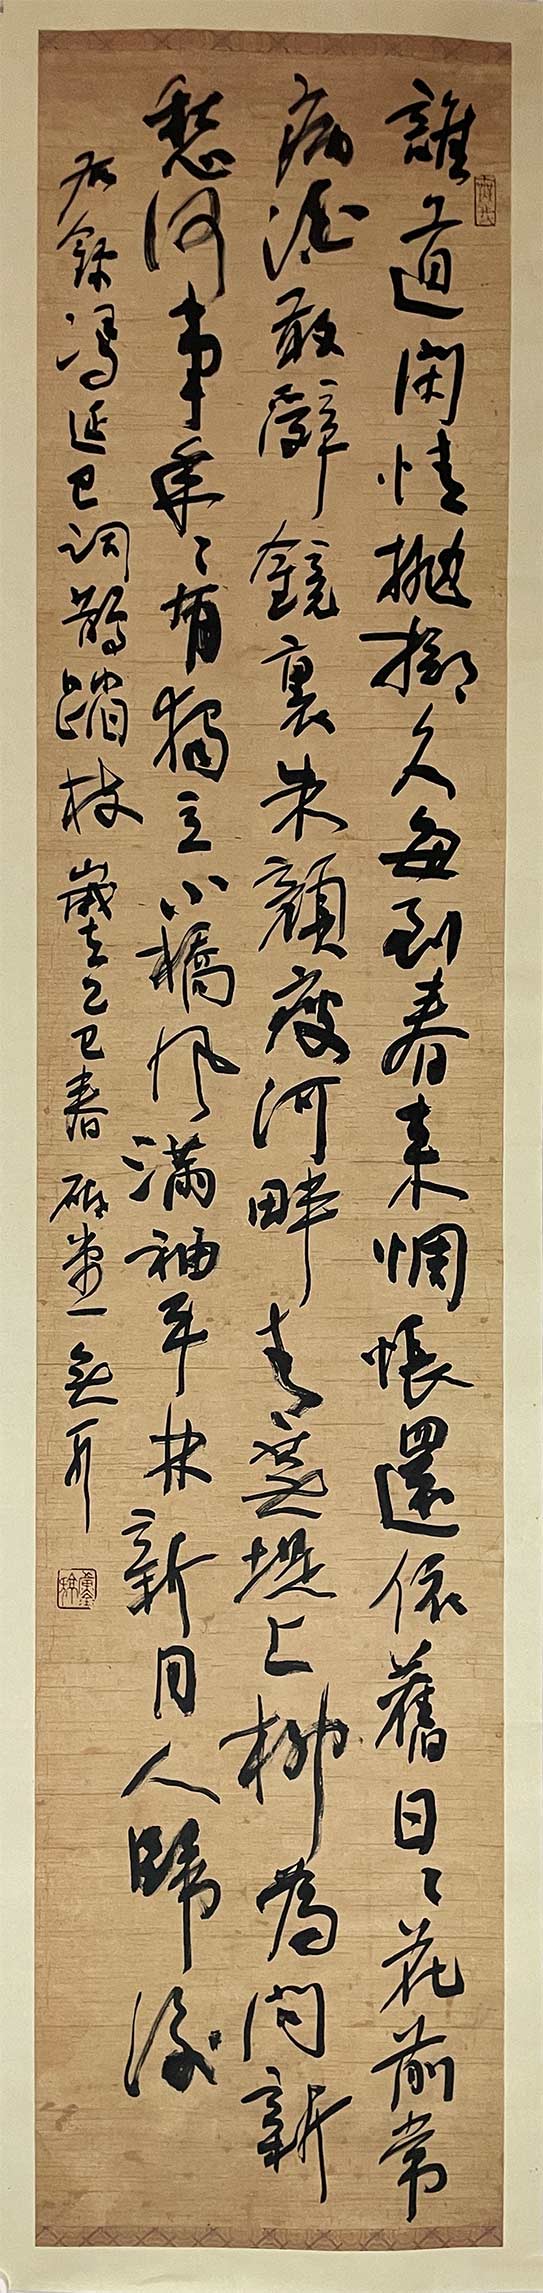 誰道閑情拋擲久每到春來惆悵還依舊日〻花前常
病酒敢辭鏡裏朱顏瘦河畔青蕪堤上柳為問新
愁何事年〻有獨立小橋風滿袖平林新月人歸後
右錄馮延巳詞鵲踏枝歲在乙巳春